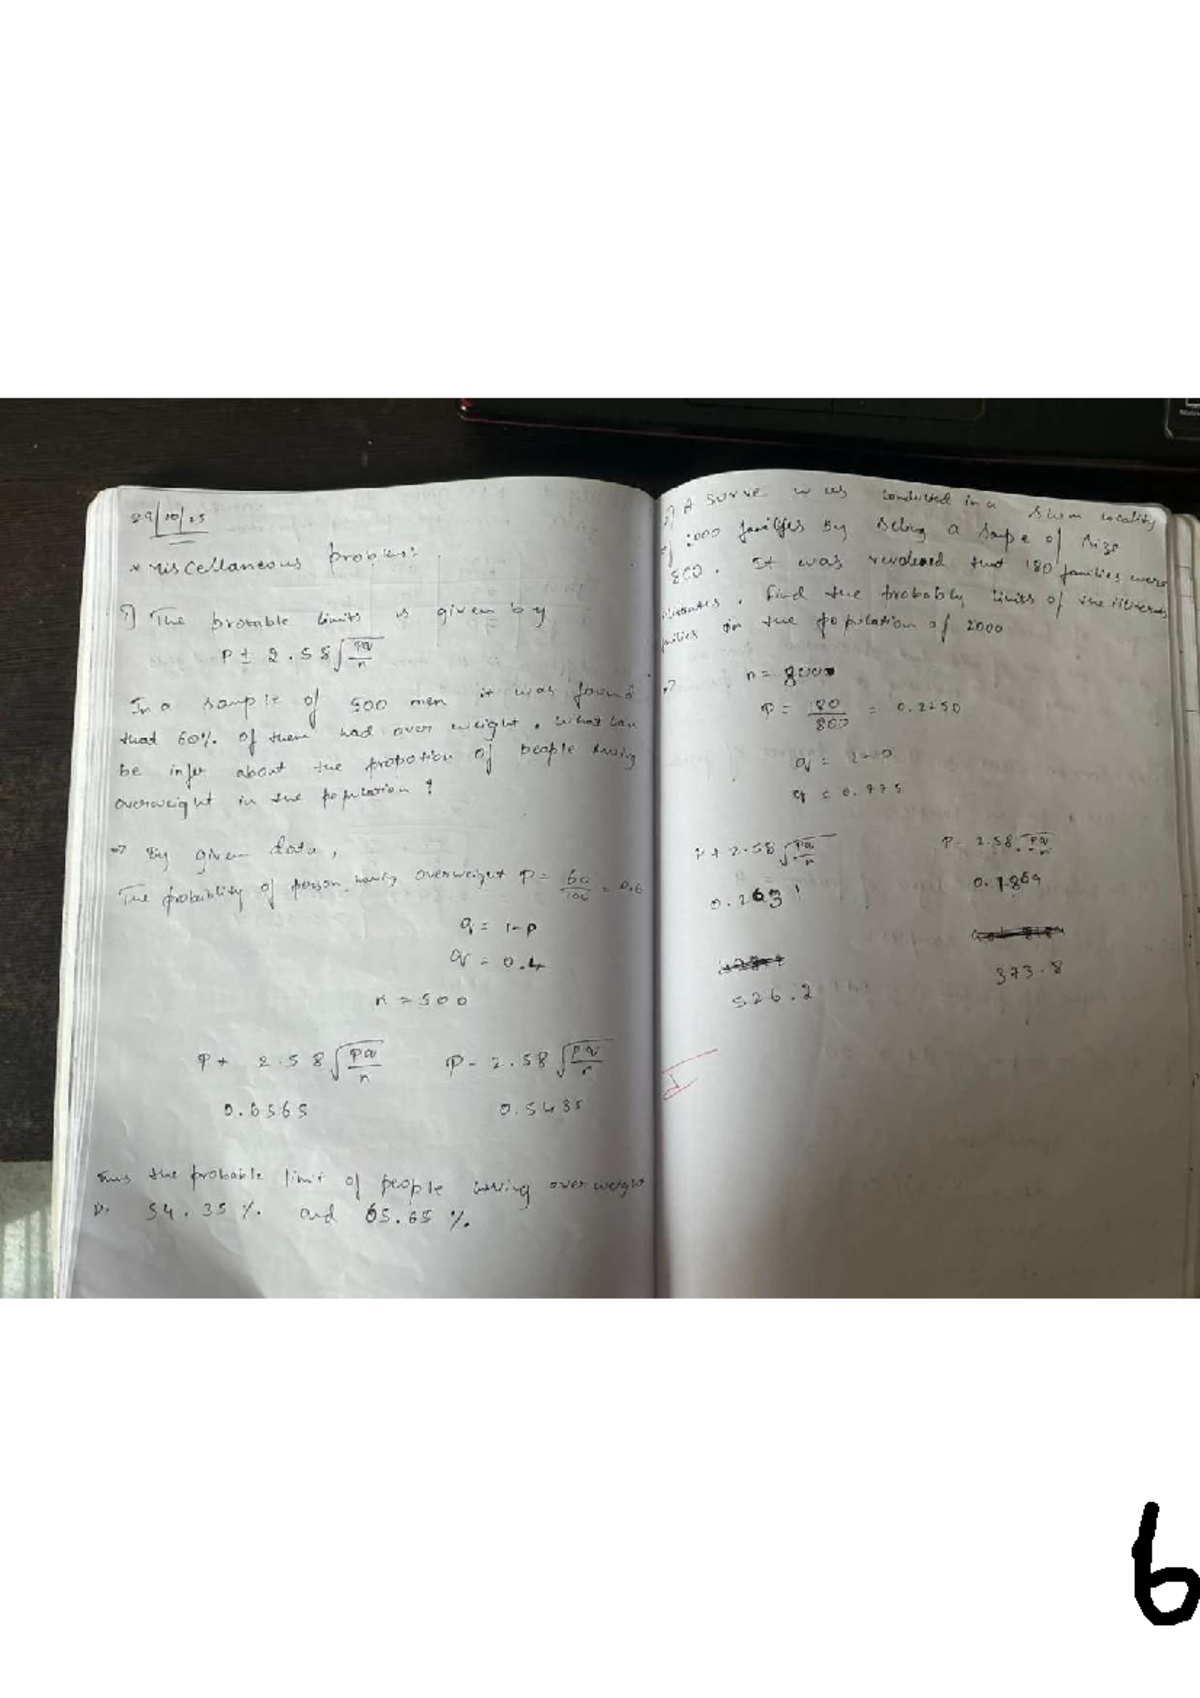 29/10/25
* Miscellaneous problem:
1) The probable limits is given by
P ± 2.58 √pq/n
In a sample of 500 men it was found
that 60% of them had over weight. What can
be infer about the propotion of people having
overweight in the population?
=> By given data,
The probability of person having overweight P = 60/100 = 0.6
q = 1-p
q = 0.4
n = 500
P + 2.58 √pq/n P - 2.58 √pq/n
0.6565 0.5435
Thus the probable limit of people having over weight
is 54.35 %. and 65.65 %.
2) A Surve was conducted in a slum locality
of 2000 families by a size
800. It was that 180 families were
find the probably limits of the
in the population of 2000
=> n = 800
P = 180/800 = 0.2250
q = 1-p
q = 0.775
P + 2.58 √pq/n P - 2.58 √pq/n
0.2631 0.1869
526.2 373.8
6